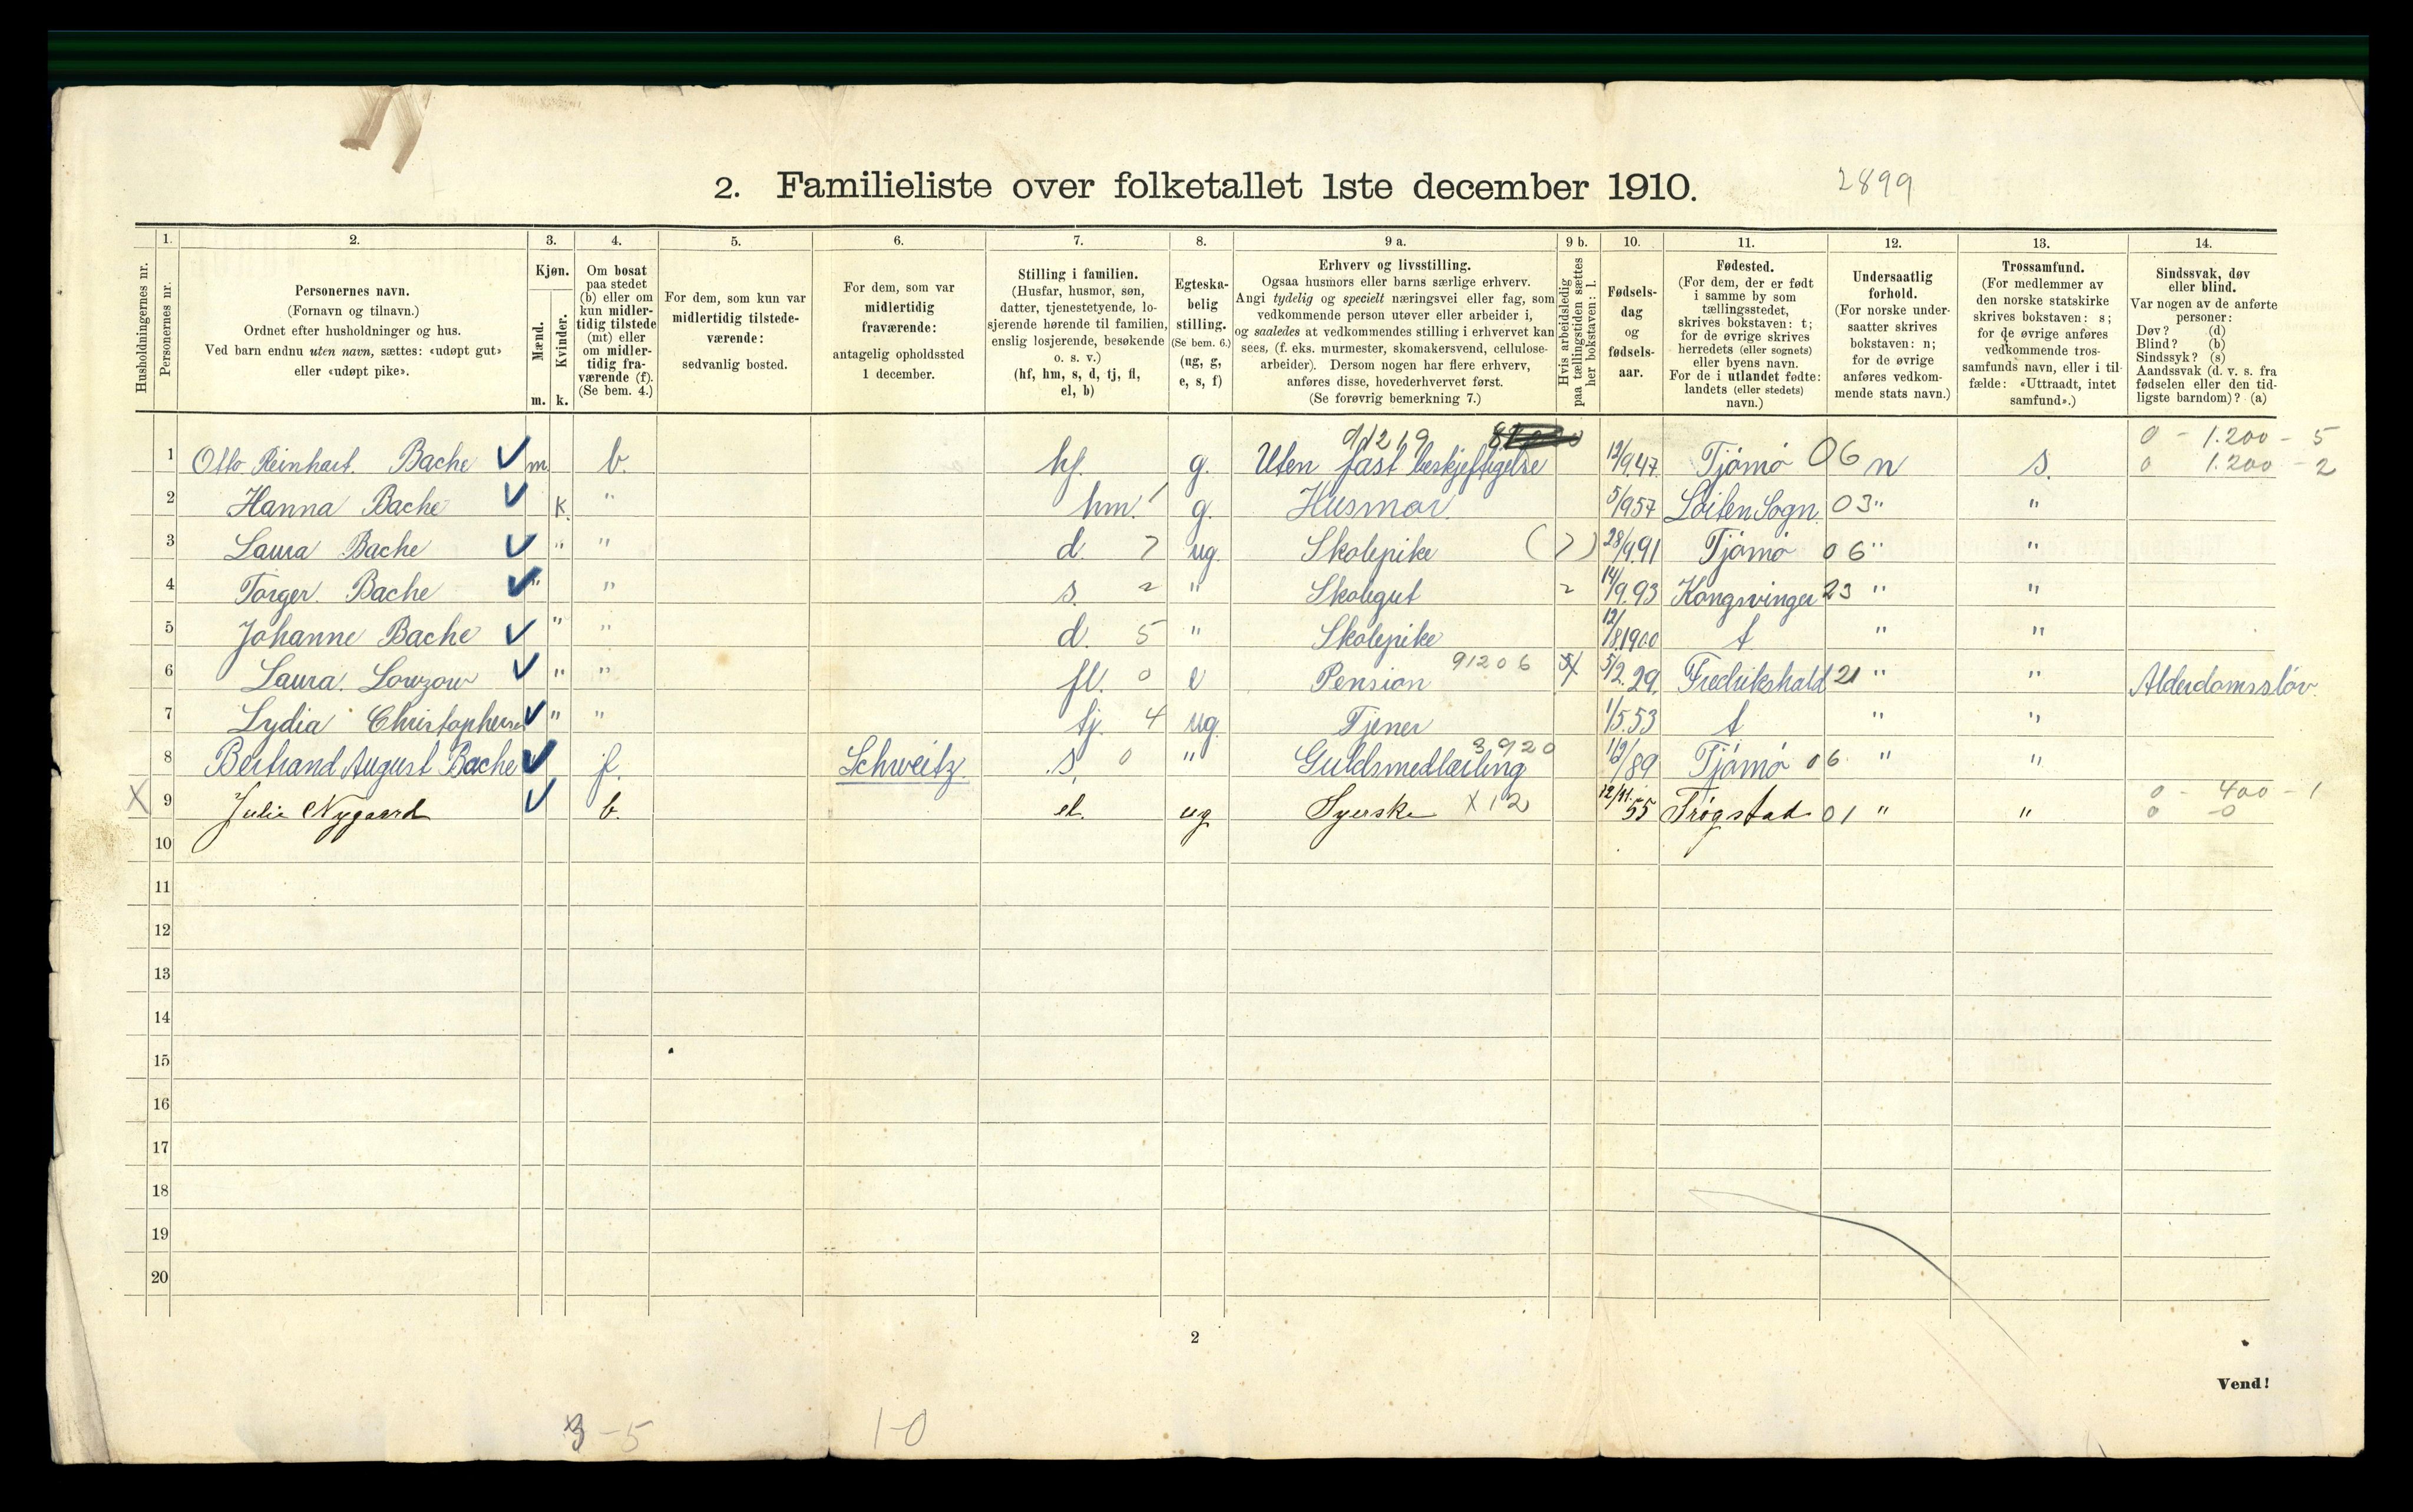 2. Familieliste over folketallet 1ste december 1910. 2899
Husholdningernes nr.
1. Personernes nr.
2. Personernes navn. (Fornavn og tilnavn.) Ordnet efter husholdninger og hus. Ved barn endnu uten navn, sættes: «udøpt gut» eller «udøpt pike».
3. Kjøn. Mænd. m. Kvinder. k.
4. Om bosat paa stedet (b) eller om kun midlertidig tilstede (mt) eller om midlertidig fraværende (f). (Se bem. 4.)
5. For dem, som kun var midlertidig tilstedeværende: sedvanlig bosted.
6. For dem, som var midlertidig fraværende: antagelig opholdssted 1 december.
7. Stilling i familien. (Husfar, husmor, søn, datter, tjenestetyende, losjerende hørende til familien, enslig losjerende, besøkende o. s. v.) (hf, hm, s, d, tj, fl, el, b)
8. Egteskabelig stilling. (Se bem. 6.) (ug, g, e, s, f)
9 a. Erhverv og livsstilling. Ogsaa husmors eller barns særlige erhverv. Angi tydelig og specielt næringsvei eller fag, som vedkommende person utøver eller arbeider i, og saaledes at vedkommendes stilling i erhvervet kan sees, (f. eks. murmester, skomakersvend, cellulosearbeider). Dersom nogen har flere erhverv, anføres disse, hovederhvervet først. (Se forøvrig bemerkning 7.)
9 b. Hvis arbeidsledig paa tællingstiden sættes her bokstaven: l.
10. Fødselsdag og fødselsaar.
11. Fødested. (For dem, der er født i samme by som tællingsstedet, skrives bokstaven: t; for de øvrige skrives herredets (eller sognets) eller byens navn. For de i utlandet fødte: landets (eller stedets) navn.)
12. Undersaatlig forhold. (For norske undersaatter skrives bokstaven: n; for de øvrige anføres vedkommende stats navn.)
13. Trossamfund. (For medlemmer av den norske statskirke skrives bokstaven: s; for de øvrige anføres vedkommende trossamfunds navn, eller i tilfælde: «Uttraadt, intet samfund».)
14. Sindssvak, døv eller blind. Var nogen av de anførte personer: Døv? (d) Blind? (b) Sindssyk? (s) Aandssvak (d. v. s. fra fødselen eller den tidligste barndom)? (a)
1 Otto Reinhart. Bache m b. hf. g. Uten fast beskjeftigelse 12/9 47. Tjømø 06 n s. 0 - 1.200 - 5 0 1.200 - 2
2 Hanna Bache k. " hm. 1 g. Husmor. 5/9 57 Løiten Sogn. 03 " "
3 Laura Bache " " d. 7 ug. Skolepike (7) 28/9 91 Tjømø 06 " "
4 Torger. Bache " " s. 2 " Skolegut 2 14/9. 93 Kongsvinger 23 " "
5 Johanne Bache " " d. 5 " Skolepike 12/8 1900 t " "
6 Laura. Lowzow " " fl. 0 e Pension 91206 5/2. 29. Fredrikshald 21 " " Alderdomssløv.
7 Lydia Christophersen " " tj. 4 ug. Tjener 1/5. 53 t " "
8 Bertrand August Bache f. Schweitz. s. 0 " Guldsmedlærling 3920 1/2/89 Tjømø 06 " "
X 9 Julie Nygaard b. el. ug Syerske X12 12/11. 55 Trøgstad 01 " " 0 - 400 - 1 0 - 0
10
11
12
13
14
15
16
17
18
19
20
2
Vend!
3 - 5 1-0